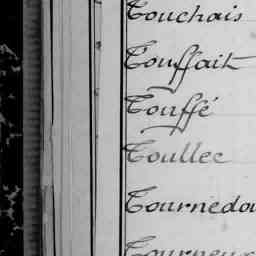 Touchais
Touffait
Touffé
Toullec
Tournedou
Tourneux